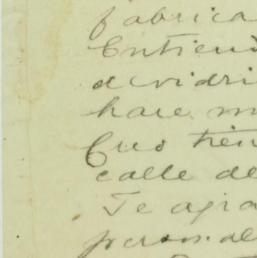 fabrica
Entiend
d vidri
hace m
Que tien
calle de
Te agra
personal